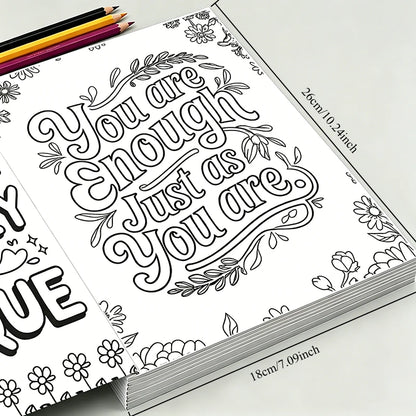 You are
Enough
Just as
You are.
Y
RUE
26cm/10.24inch
18cm/7.09inch